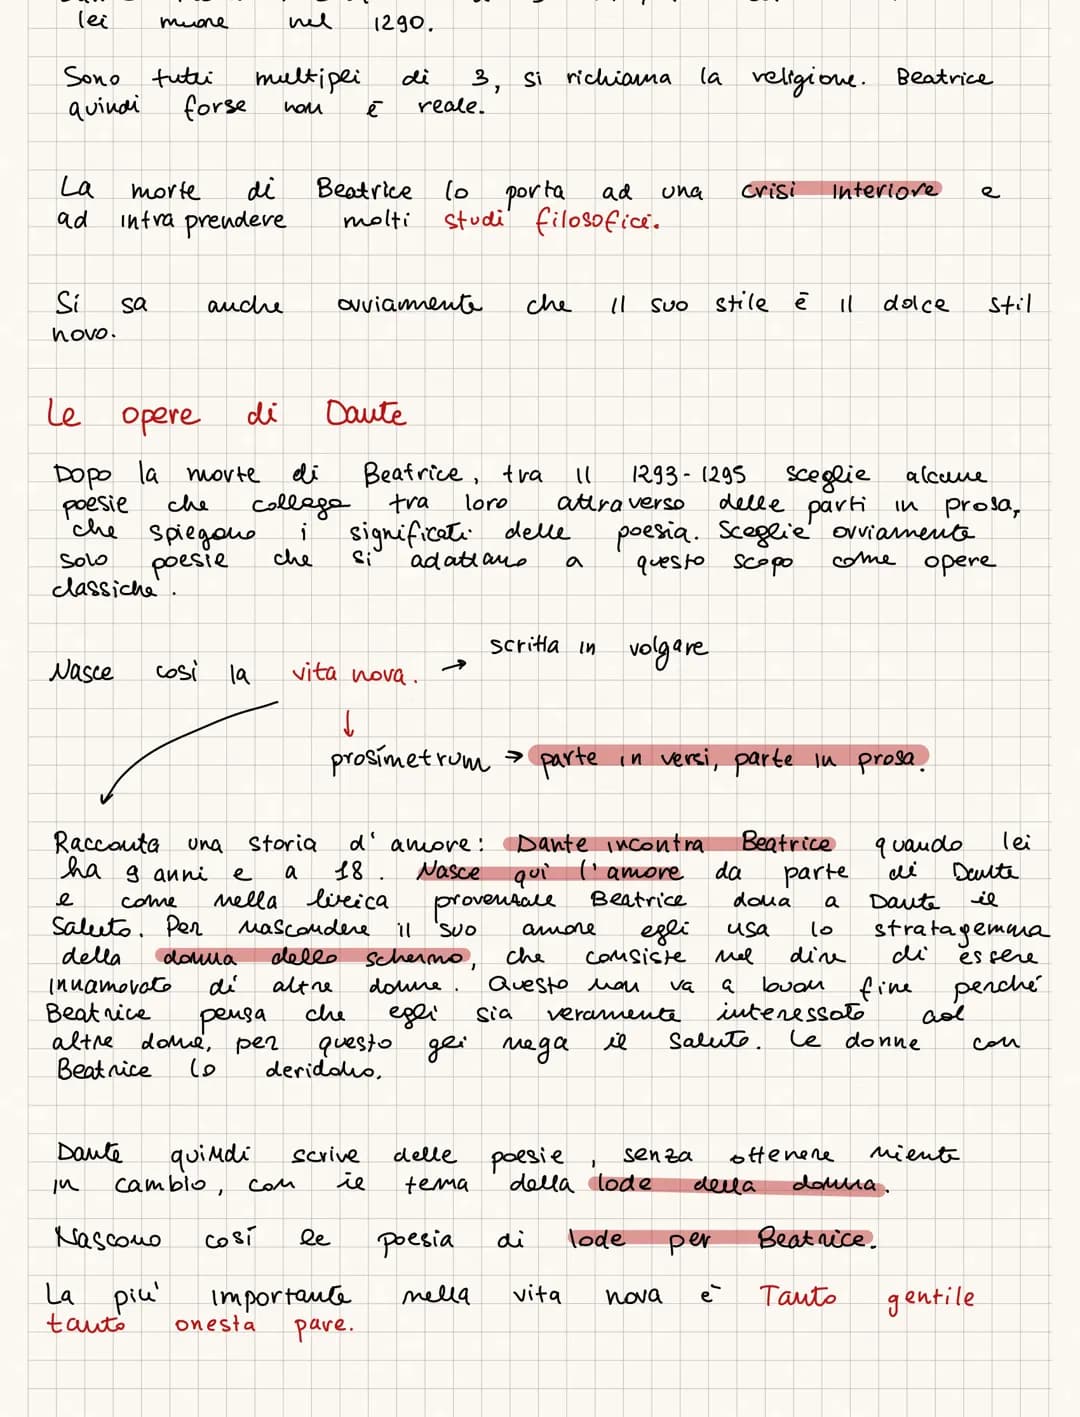 lei muore nel 1290.
Sono tutti multipli di 3, si richiama la religione. Beatrice
quindi forse non è reale.
La morte di Beatrice lo porta ad una crisi interiore e
ad intraprendere molti studi filosofici.
Si sa anche ovviamente che il suo stile è il dolce stil
novo.
Le opere di Dante
Dopo la morte di Beatrice, tra il 1293-1295 sceglie alcune
poesie che collega tra loro attraverso delle parti in prosa,
che spiegano i significati delle poesia. Sceglie ovviamente
solo poesie che si adattano a questo scopo come opere
classiche.
scritta in volgare
Nasce così la vita nova. →
↓
prosimetrum → parte in versi, parte in prosa.
Racconta una storia d'amore: Dante incontra Beatrice quando lei
ha 9 anni e a 18. Nasce qui l'amore da parte di Dante
e come nella lirica provenzale Beatrice dona a Dante il
Saluto. Per nascondere il suo amore egli usa lo stratagemma
della donna dello schermo, che consiste nel dire di essere
innamorato di altre donne. Questo non va a buon fine perché
Beatrice pensa che egli sia veramente interessato ad
altre donne, per questo gli nega il saluto. Le donne con
Beatrice lo deridono.
Dante quindi scrive delle poesie, senza ottenere niente
in cambio, con il tema della lode della donna.
Nascono così le poesia di lode per Beatrice.
La più importante nella vita nova è Tanto gentile
tanto onesta pare.